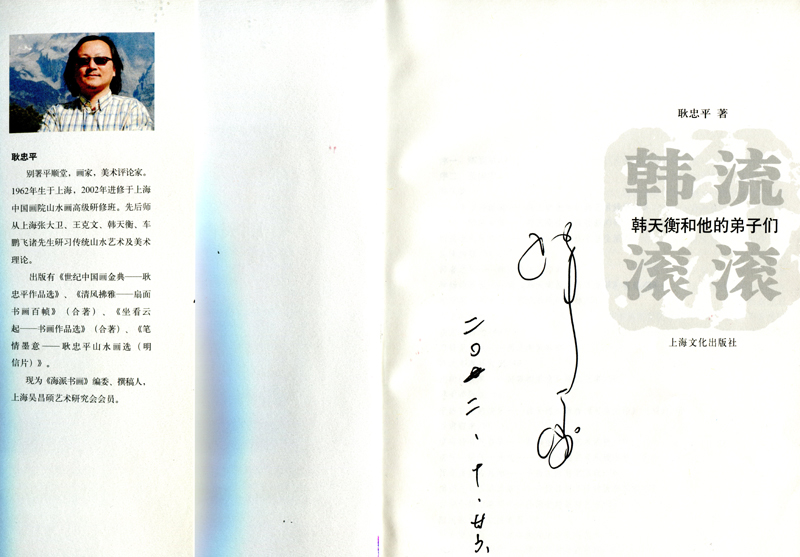 耿忠平
别署平顺堂，画家，美术评论家。
1962年生于上海，2002年进修于上海
中国画院山水画高级研修班。先后师
从上海张大卫、王克文、韩天衡、车
鹏飞诸先生研习传统山水艺术及美术
理论。
出版有《世纪中国画金典——耿
忠平作品选》、《清风拂雅——扇面
书画百帧》（合著）、《坐看云
起——书画作品选》（合著）、《笔
情墨意——耿忠平山水画选（明
信片）》。
现为《海派书画》编委、撰稿人，
上海吴昌硕艺术研究会会员。
耿忠平 著
韩流
韩天衡和他的弟子们
滚滚
上海文化出版社